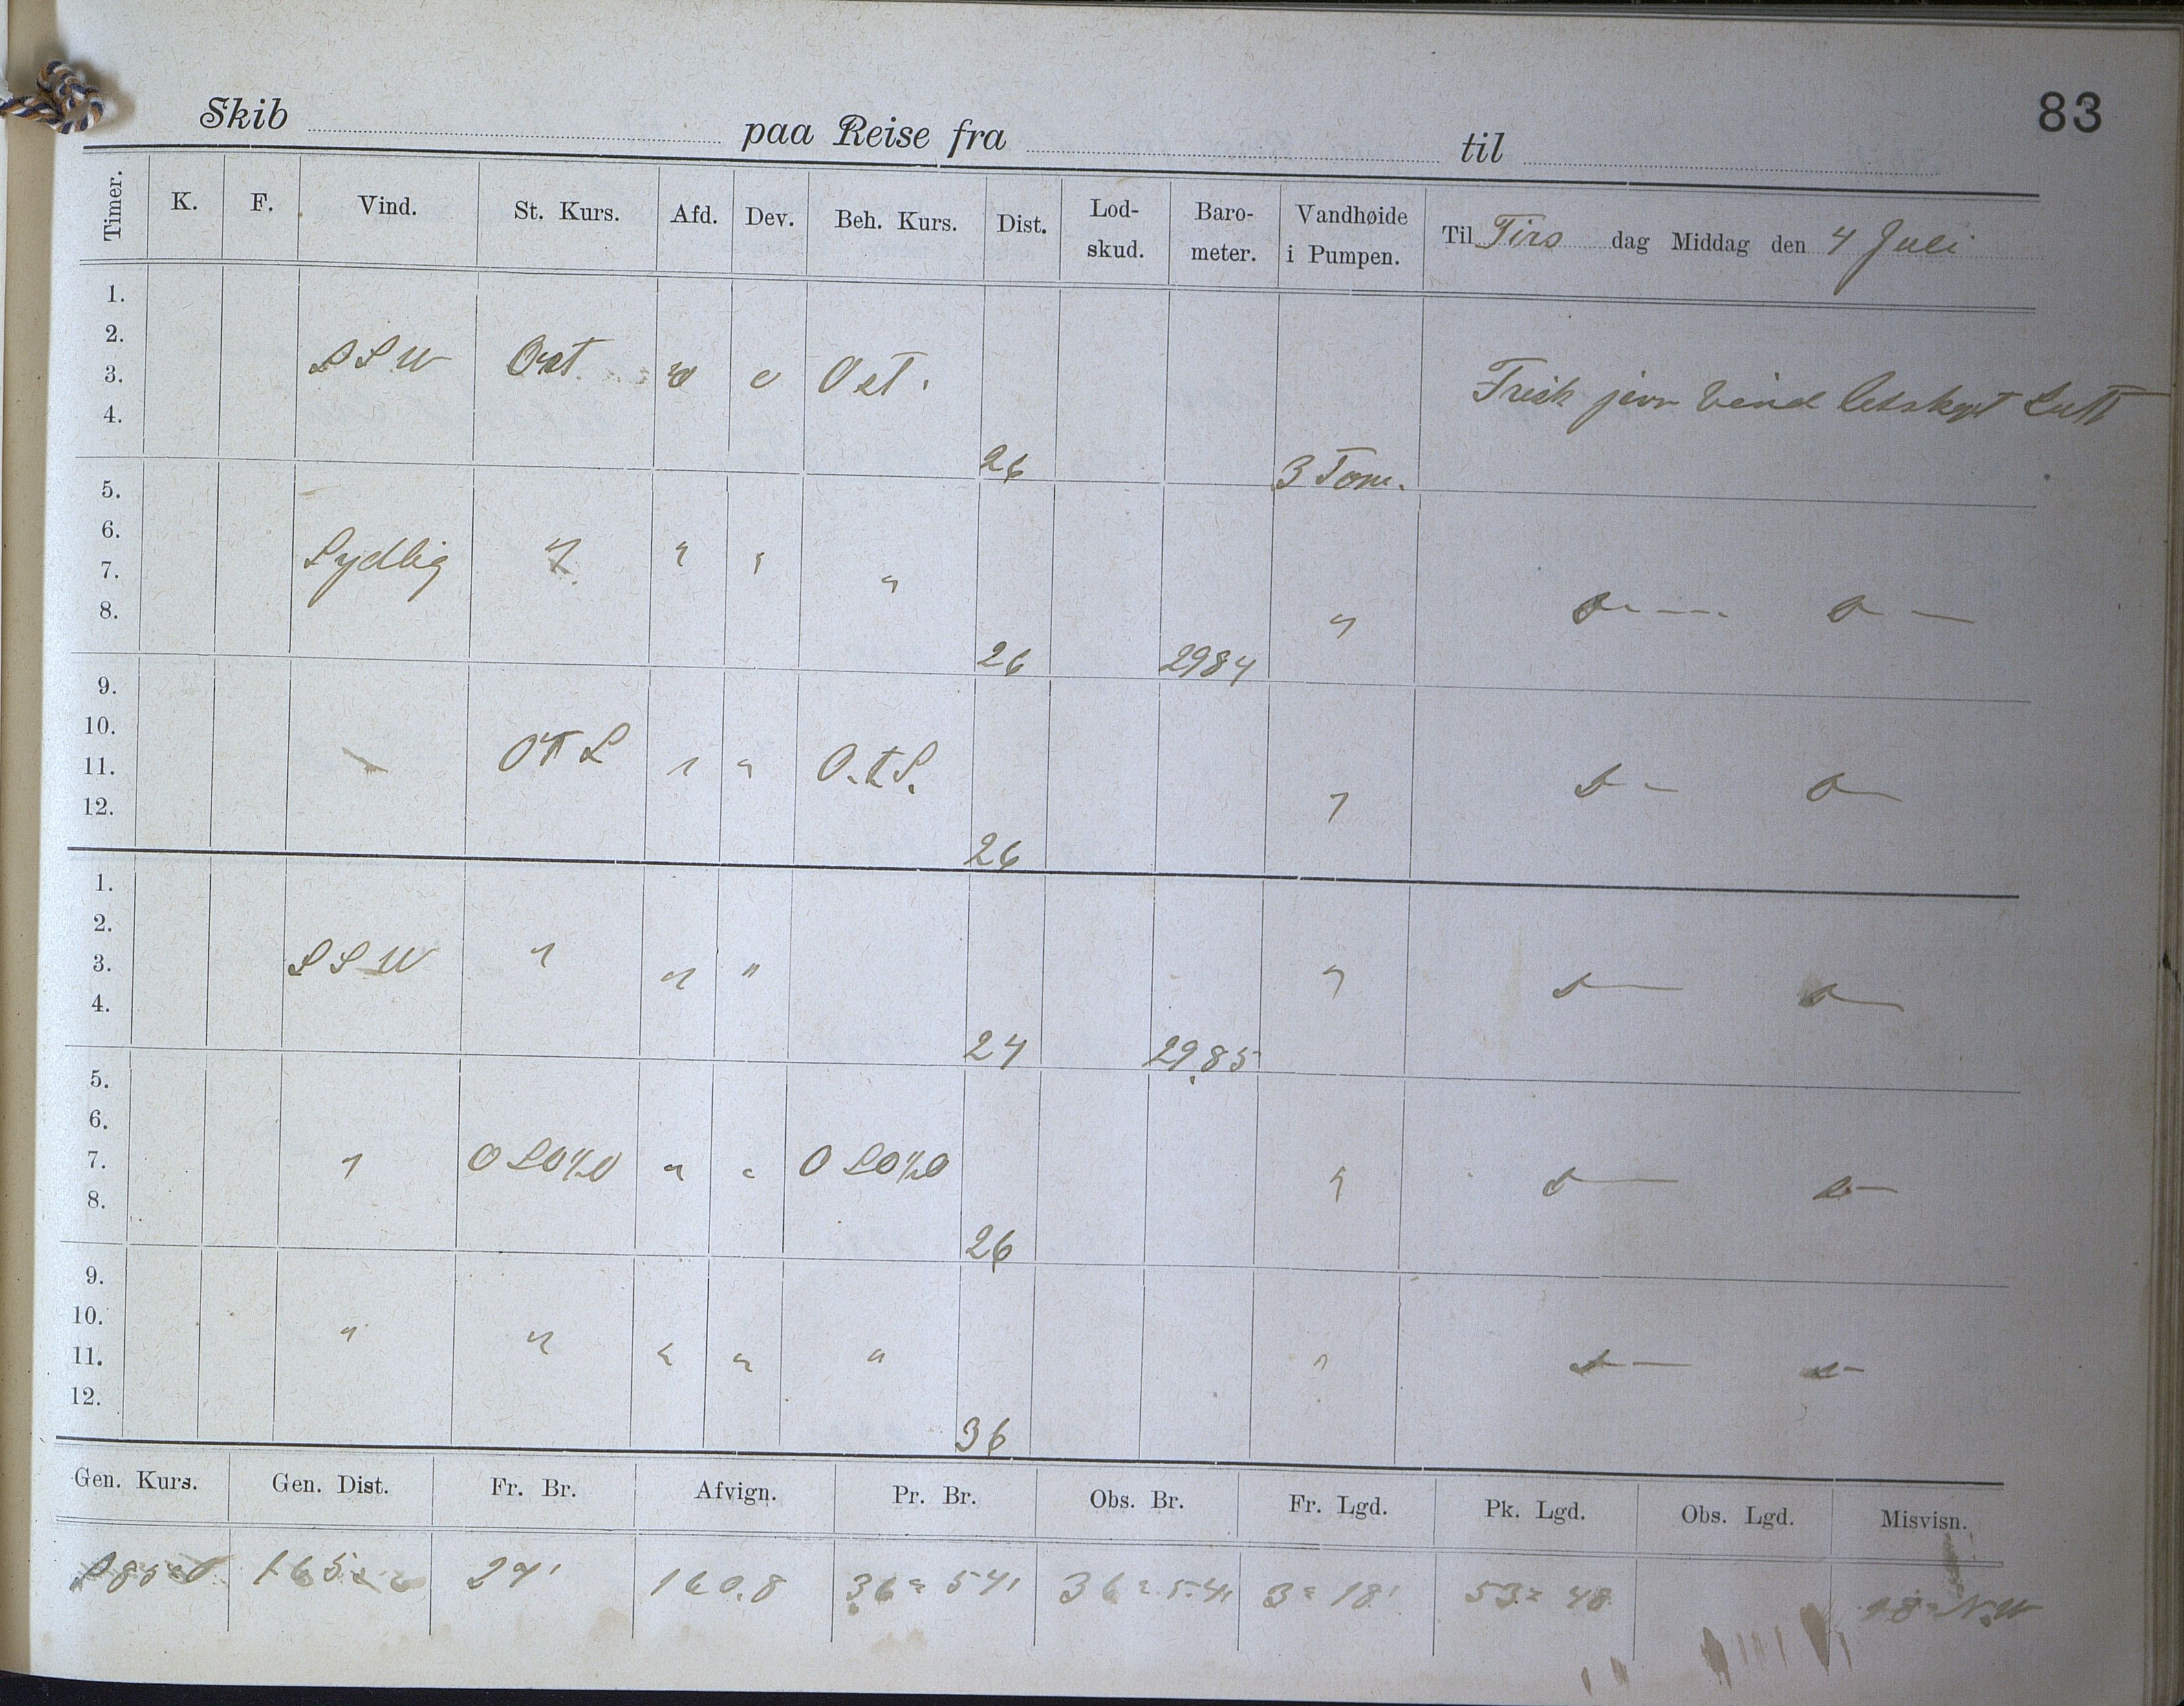 83
Skib paa Reise fra til
Timer. K. F. Vind. St. Kurs. Afd. Dev. Beh. Kurs. Dist. Lod-skud. Baro-meter. Vandhøide i Pumpen. Til Tirs dag Middag den 4 Juli
1.
2.
3. SSW Ost Ost.
4. Frisk jevn Vind letskyet Luft
26 3 Tom.
5.
6.
7. Sydlig " " " "
8. "
26 2984
9.
10.
11. OTS " " O.t.S.
12. "
26
1.
2.
3. SSW " " " "
4.
24 29,85
5.
6.
7. " OSO½O " " OSO½O "
8.
26
9.
10.
11. " " " " " "
12.
36
Gen. Kurs. Gen. Dist. Fr. Br. Afvign. Pr. Br. Obs. Br. Fr. Lgd. Pk. Lgd. Obs. Lgd. Misvisn.
27' 160.8 36° 54' 36° 54' 3° 18' 53° 48 18° N.W